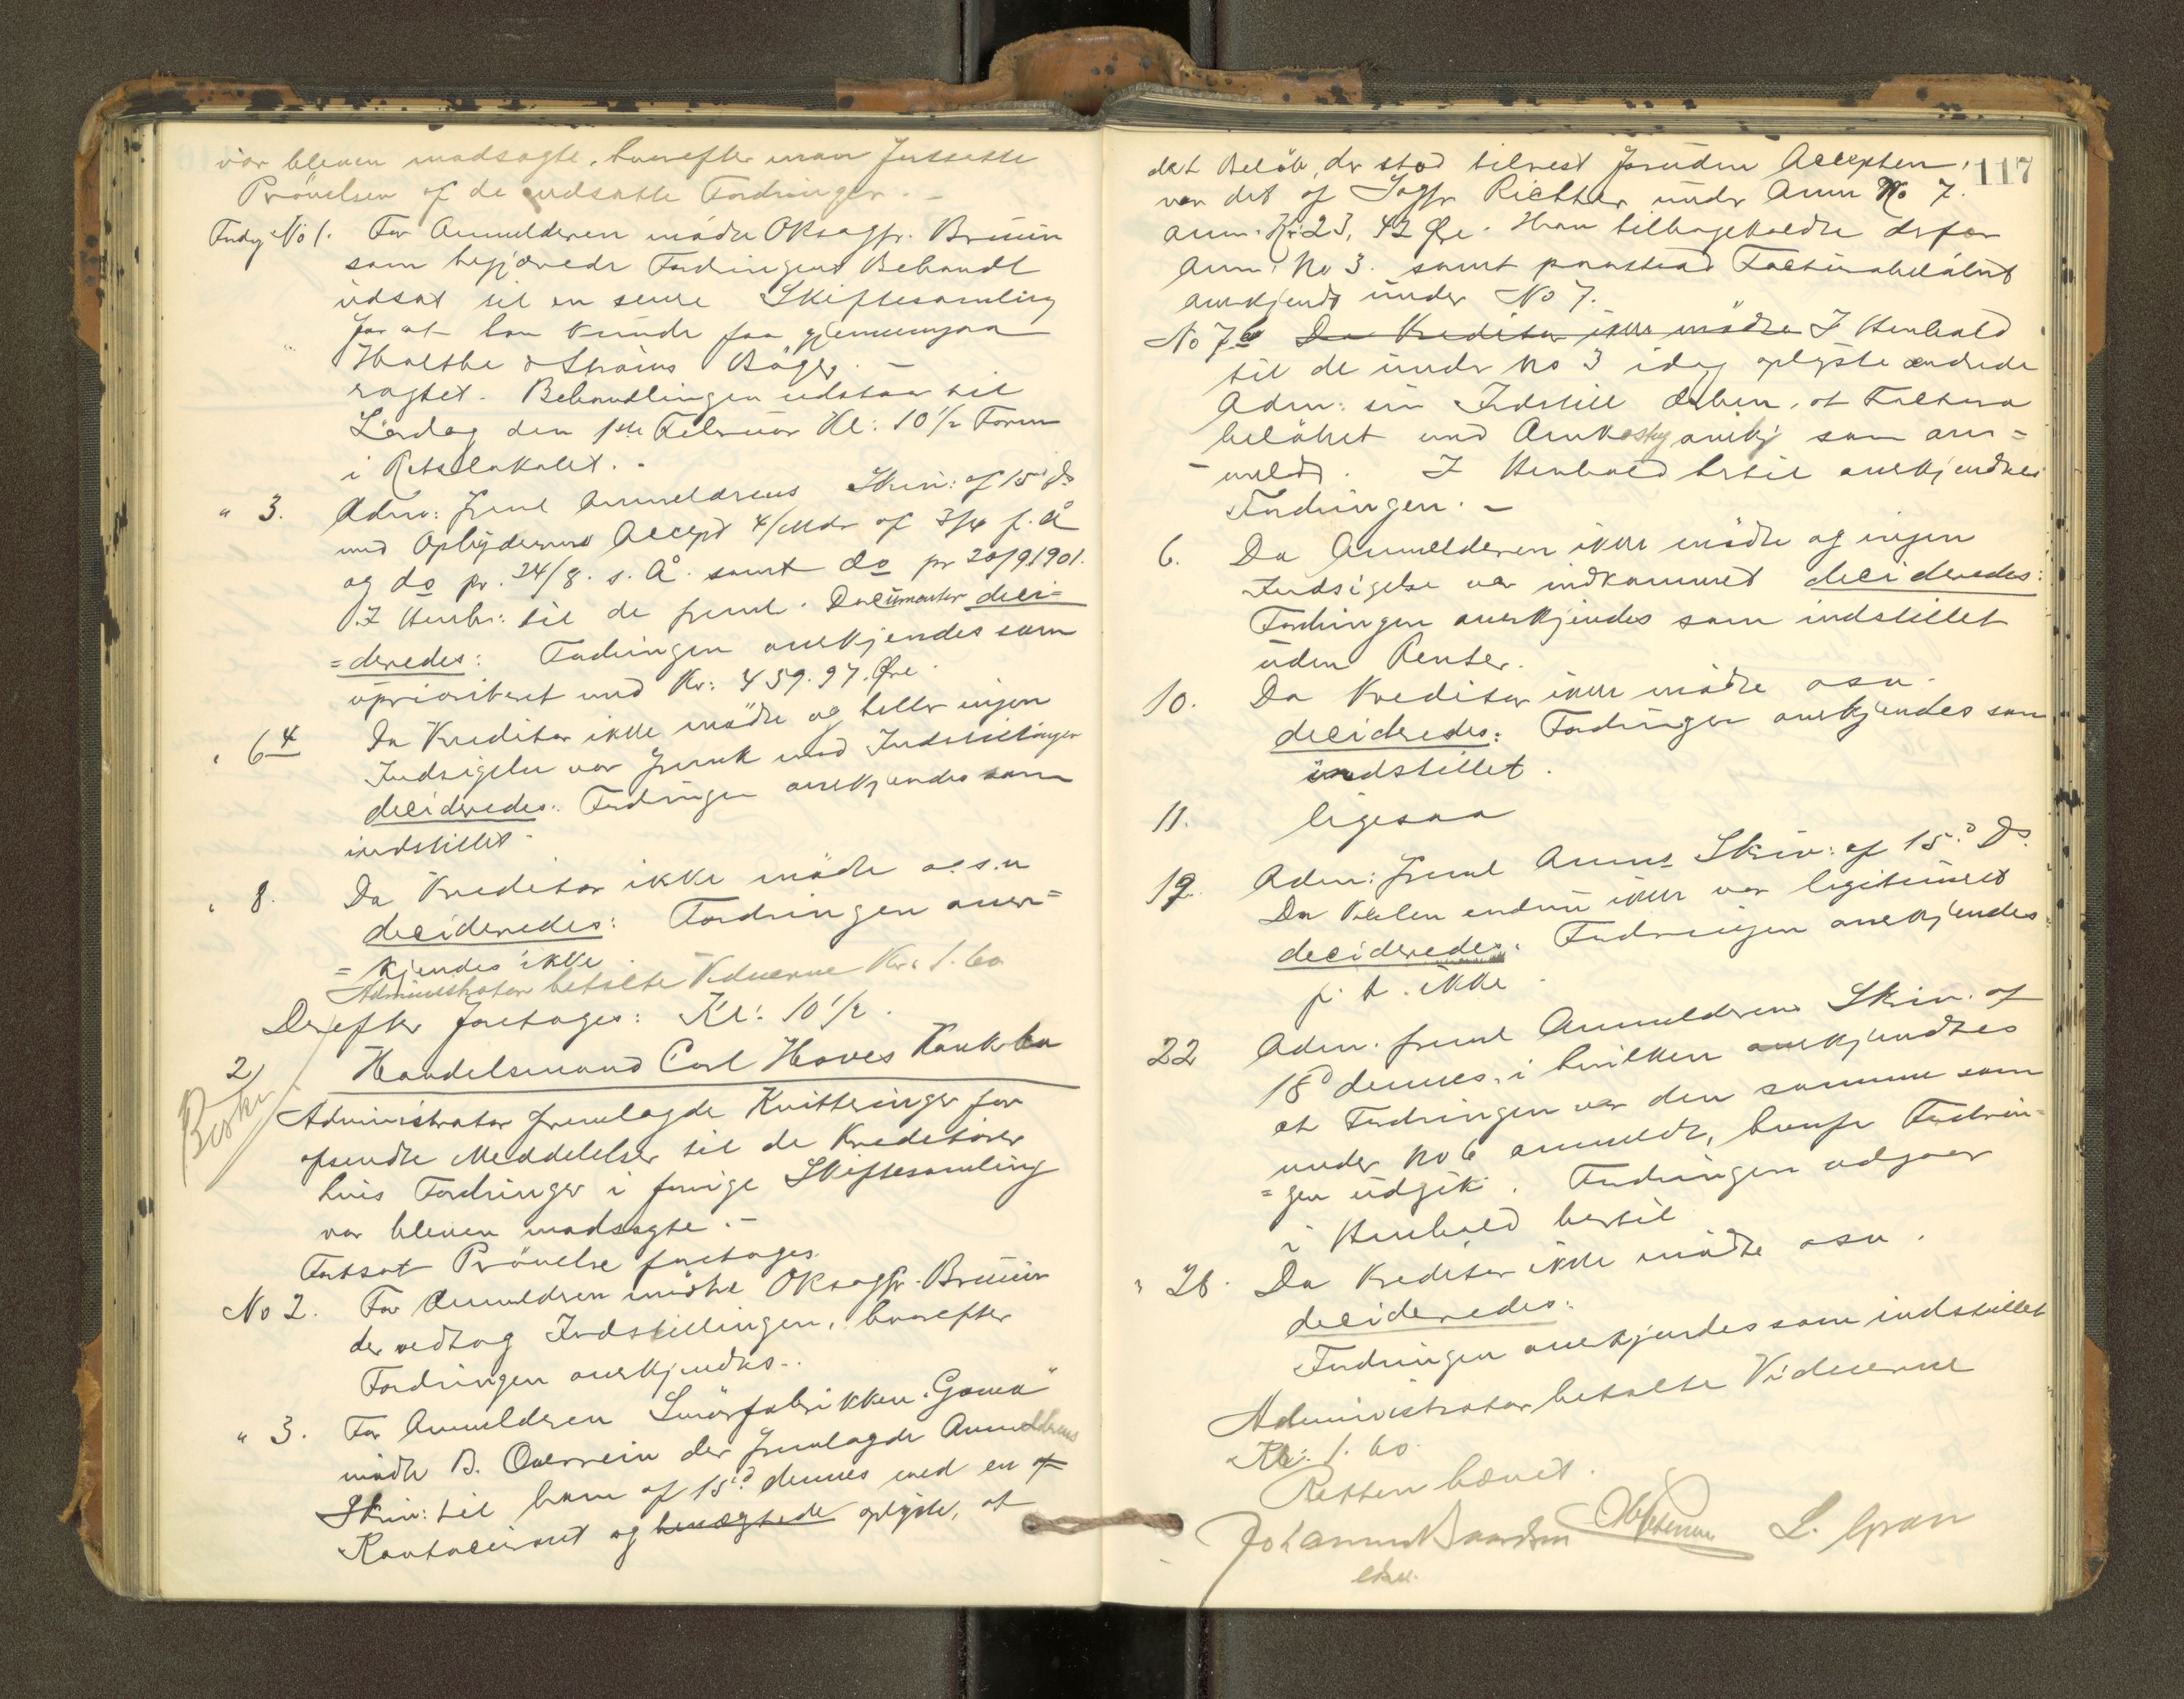 var bleven modsagte, hvorefter man fortsatte
Prøvelsen af de udsatte Fordringer. -
Fordg No 1. For Anmelderen mødte OKsagfr. Bruun
som begjærede Fordringens Behandl
udsat til en senere Skiftesamling
for at han kunde faa gjennemgaa
Holthe & Strøms Bøger. -
vagtet. Behandlingen udstaar til
Lørdag den 1ste Februar Kl: 10 1/2 Form
i Retslokalet. -
" 3. Adm: freml Anmelderens Skriv: af 15 ds
med Opbyderens Accept 4/Mdr af 3/4 f. Å
og do pr. 24/8. s. Å. samt do pr 20/9 1901.
I Henh: til de freml. Documenter deci=
=deredes: Fordringen anerkjendes som
uprioriteret med Kr: 459.97. Øre.
" 6 4 Da Kreditor ikke mødte og heller ingen
Indsigelse var fremk mod Indstillingen
decideredes: Fordringen anerkjendes som
indstillet.
" 8. Da Kreditor ikke mødte o.s.v
decideredes: Fordringen aner=
=kjendes ikke.
Administrator betalte Vidnerne Kr: 1.60
Derefter foretoges: Kl: 10 1/2.
2/ Handelsmand Carl Hoves Konkbo
Beskr
Administrator fremlagde Kvitteringer for
afsendte Meddelelser til de Kreditorer
hvis Fordringer i forrige Skiftesamling
var bleven modsagte. -
Fortsat Prøvelse foretoges.
No 2. For Anmelderen mødte OKsagfr. Bruun
der vedtog Indstillingen, hvorefter
Fordringen anerkjendtes. -
" 3. For Anmelderen Smørfabrikken "Goma"
mødte B. Overrein der fremlagde Anmelderens
Skriv: til ham af 15de dennes med en
Kontocourant og benægtede oplyste, at
117
det Beløb, der stod tilrest foruden Accepten,
var det af Sagfr Richter under Anm No 7.
anm. Kr: 23, 42 Øre. Han tilbagekaldte derfor
Anm: No 3. samt paastod Facturabeløbet
anerkjendt under No 7.
No 7 Da Kreditor ikke mødte I Henhold
til de under No 3 idag oplyste ændrede
Adm: sin Indstill derhen, at Factura
beløbet med anerkj som an=
-meldt. I Henhold hertil anerkjendtes
Fordringen. -
6. Da Anmelderen ikke mødte og ingen
Indsigelse var indkommet decideredes:
Fordringen anerkjendes som indstillet
uden Renter.
10. Da Kreditor ikke mødte osv.
decideredes: Fordringen anerkjendes som
indstillet.
11. ligesaa
12. Adm: freml Anms Skriv: af 15de Ds.
Da endnu ikke var legitimeret
decideredes: Fordringen anerkjendes
p. t. ikke.
22 Adm. freml Anmelderens Skriv. af
18d dennes, i hvilken anerkjendtes
at Fordringen var den samme som
under No 6 anmeldt, hvorfor Fordrin=
=gen udgik. Fordringen udgaar
i Henhold hertil
" 26. Da Kreditor ikke mødte osv.
decideredes:
Fordringen anerkjendes som indstillet
Administrator betalte Vidnerne
Kr: 1.60.
Retten hævet.
L. Gran